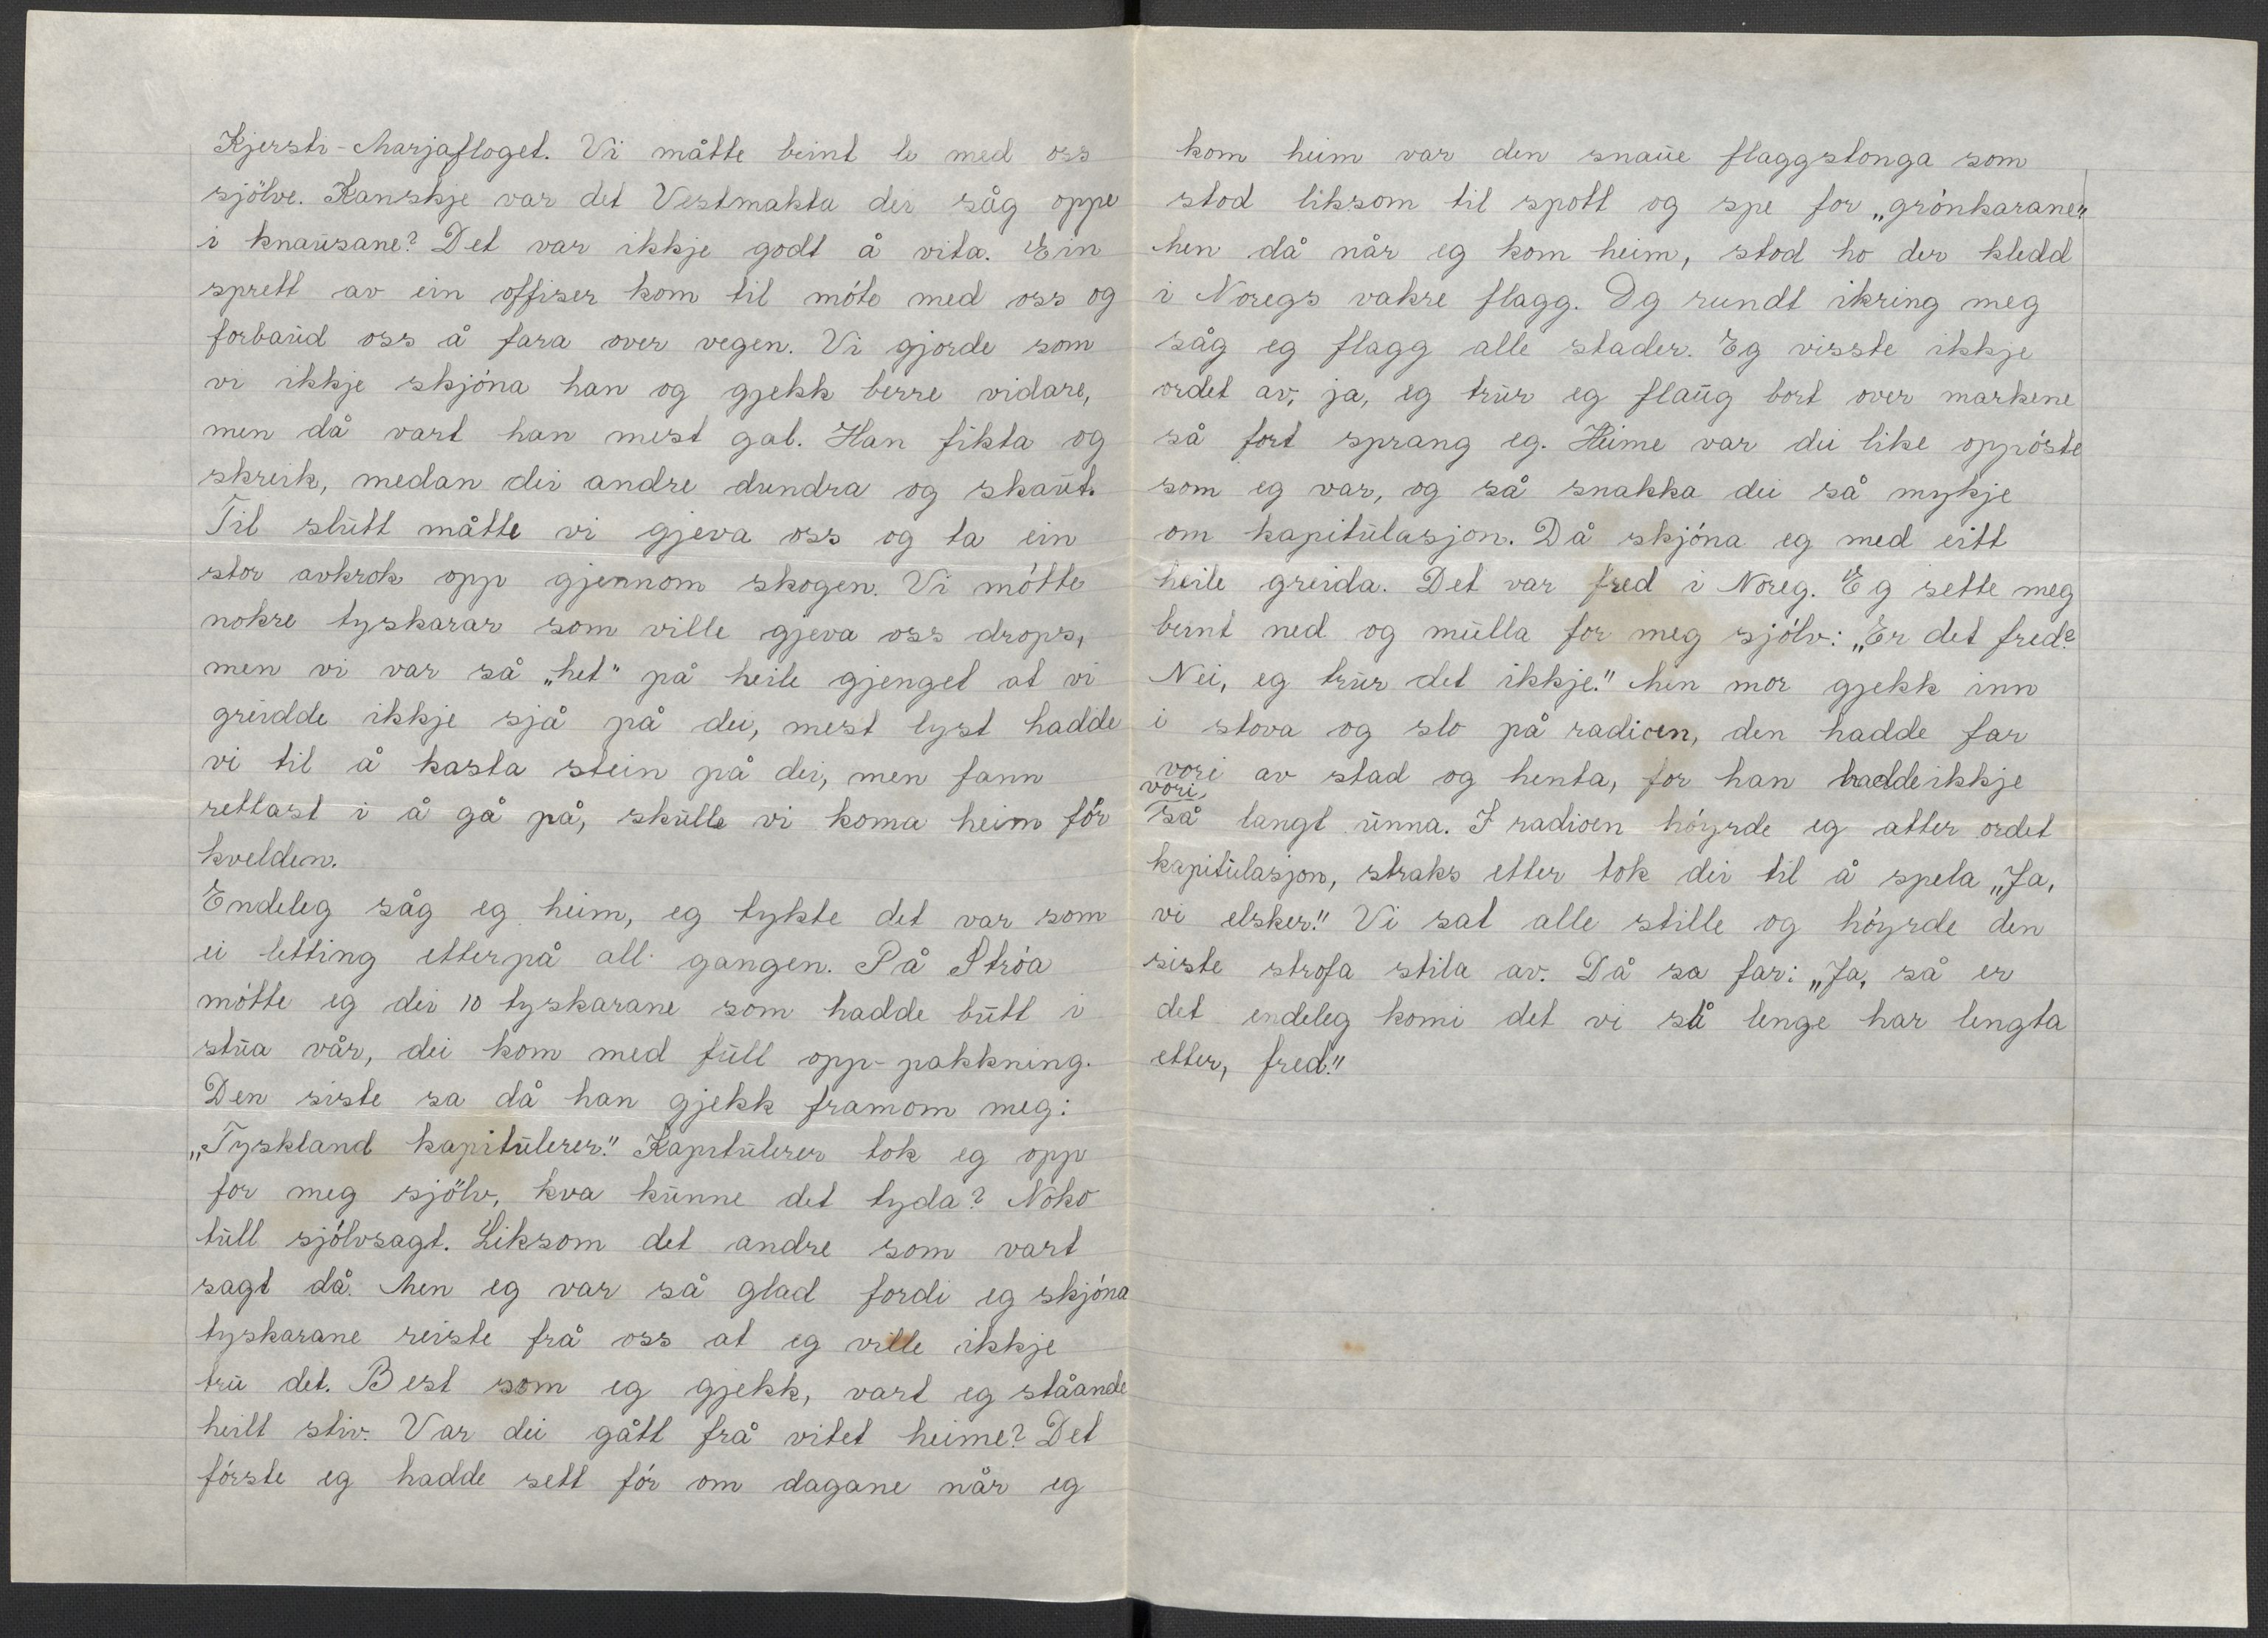 Kjersti-Marjafloget. Vi måtte beint le med oss
sjölve. Kanskje var det Vestmakta dei såg oppe
i knausane? Det var ikkje godt å vita. Ein
sprett av ein offiser kom til móte med oss og
forbaud oss å fara over vegen. Vi gjorde som
vi ikkje skjóna han og gjekk berre vidare,
men då vart han mest gal. Han fikta og
skreik, medan dei andre dundra og skaut.
Til slutt måtte vi gjeva oss og ta ein
stor avkrok opp gjennom skogen. Vi mótte
nokre tyskarar som ville gjeva oss drops,
men vi var så „het" på heile gjenget at vi
greidde ikkje sjå på dei, mest lyst hadde
vi til å kasta stein på dei, men fann
rettast i å gå på, skulle vi koma heim fór
kvelden.
Endeleg såg eg heim, eg tykte det var som
ei letting etterpå all gangen. På Stróa
mótte eg dei 10 tyskarane som hadde butt i
stua vår, dei kom med full opp-pakkning.
Den siste sa då han gjekk framom meg:
„Tyskland kapitulerer." Kapitulerer tok eg opp
for meg sjölv, kva kunne det tyda? Noko
tull sjólvsagt. Liksom det andre som vart
sagt då. Men eg var så glad fordi eg skjóna
tyskarane reiste frå oss at eg ville ikkje
tru det. Best som eg gjekk, vart eg ståande
heilt stiv. Var dei gått frå vitet heime? Det
fórste eg hadde sett fór om dagane når eg
kom heim var den snaue flaggstonga som
stod liksom til spott og spe for „grónkarane"
Men då når eg kom heim, stod ho der kledd
i Noregs vakre flagg. Og rundt ikring meg
såg eg flagg alle stader. Eg visste ikkje
ordet av, ja, eg trur eg flaug bort over markene
så fort sprang eg. Heime var dei like oppóste
som eg var, og så snakka dei så mykje
om kapitulasjon. Då skjóna eg med eitt
heile greida. Det var fred i Noreg. Eg sette meg
beint ned og mulla for meg sjólv: „Er det fred?
Nei, eg trur det ikkje." Men mor gjekk inn
i stova og slo på radioen, den hadde far
vori av stad og henta, for han hadde ikkje
vori
så langt unna. I radioen hóyrde eg atter ordet
kapitulasjon, straks etter tok dei til å spela „Ja,
vi elsker." Vi sat alle stille og hóyrde den
siste strofa stila av. Då sa far: „Ja, så er
det endeleg komi det vi så lenge har lengta
etter, fred."